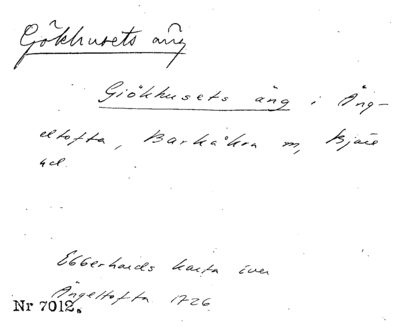 Gökhusets äng
Giökhusets äng i Äng-
eltofta, Barkåkra sn, Bjäre
hd.
Ebberhards karta över
Ängeltofta 1726
Nr 7012.